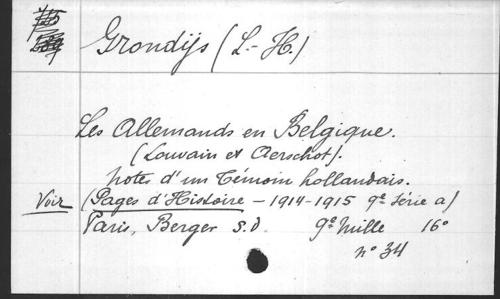 Grondijs (L.-H.)
Les Allemands en Belgique.
(Louvain et Aerschot).
Notes d'un témoin hollandais.
Voir (Pages d'Histoire - 1914-1915 9e Série a)
Paris, Berger S.D 9e Mille 16°
n° 34